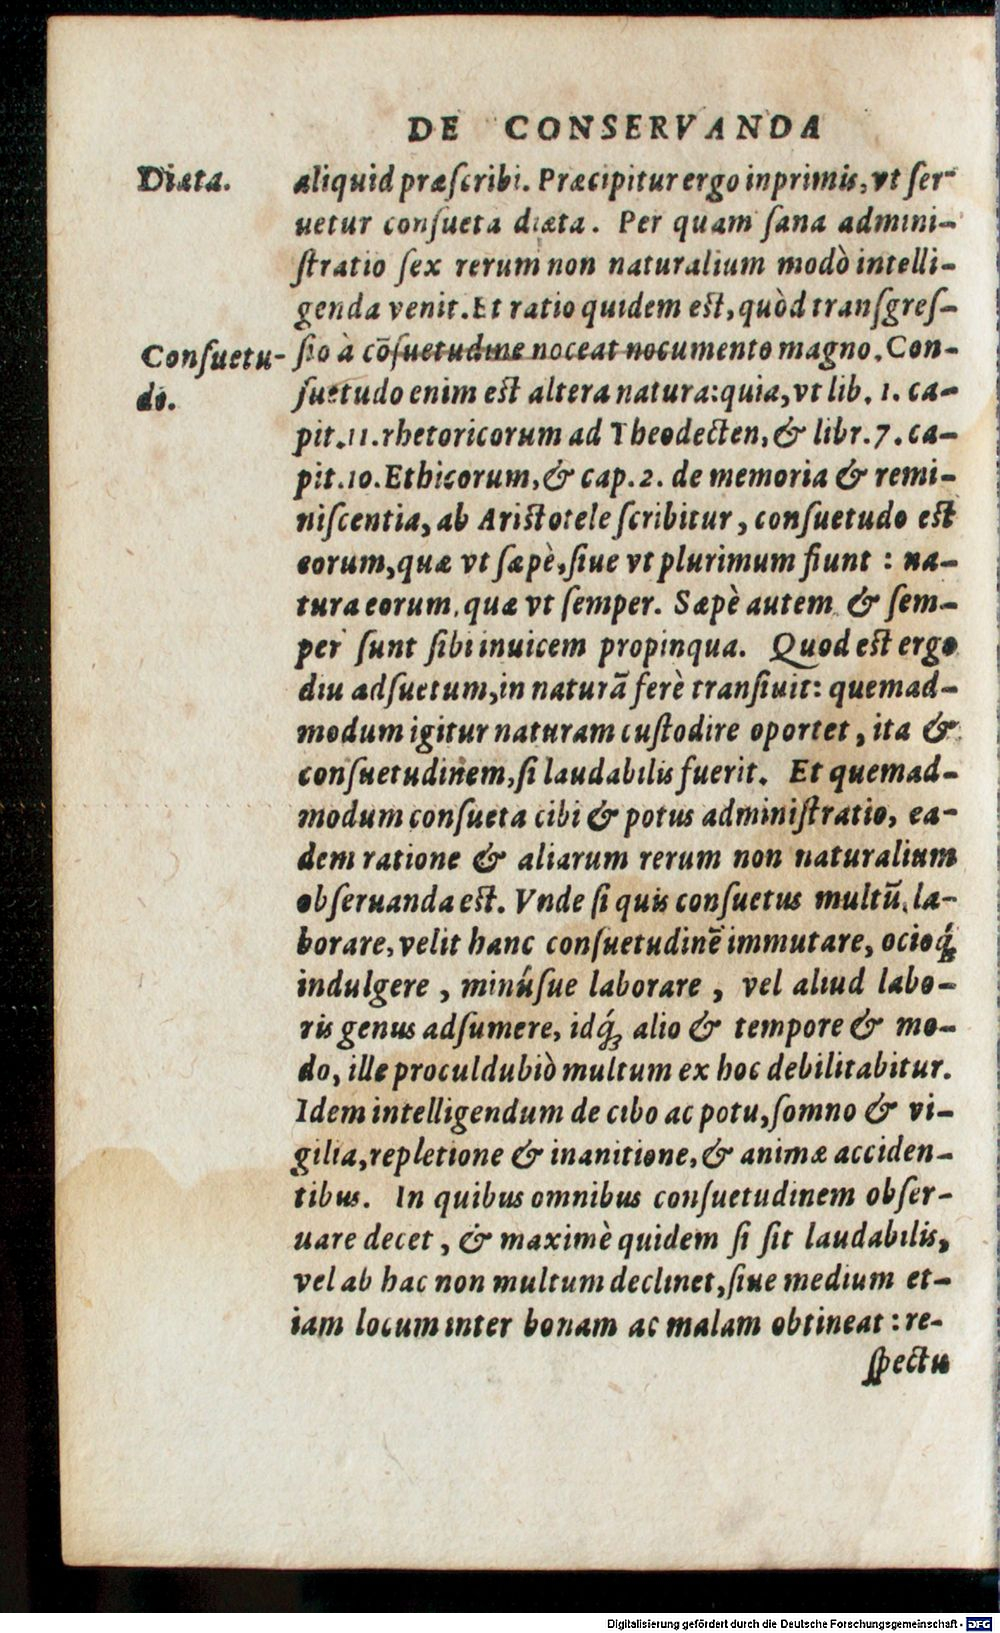 DE CONSERVANDA
Diæta.
aliquid præſcribi. Præcipitur ergo inprimis, vt ſer-
uetur conſueta diæta. Per quam ſana admini-
ſtratio ſex rerum non naturalium modò intelli-
genda venit. Et ratio quidem eſt, quòd tranſgreſ-
Conſuetu-
do.
ſio à cõſuetudine noceat nocumento magno. Con-
ſuetudo enim eſt altera natura: quia, vt lib. 1. ca-
pit. 11. rhetoricorum ad Theodecten, & libr. 7. ca-
pit. 10. Ethicorum, & cap. 2. de memoria & remi-
niſcentia, ab Ariſtotele ſcribitur, conſuetudo eſt
eorum, quæ vt ſæpè, ſiue vt plurimum fiunt : na-
tura eorum, quæ vt ſemper. Sæpè autem & ſem-
per ſunt ſibi inuicem propinqua. Quod eſt ergo
diu adſuetum, in naturã ferè tranſiuit: quemad-
modum igitur naturam cuſtodire oportet, ita &
conſuetudinem, ſi laudabilis fuerit. Et quemad-
modum conſueta cibi & potus adminiſtratio, ea-
dem ratione & aliarum rerum non naturalium
obſeruanda eſt. Vnde ſi quis conſuetus multũ la-
borare, velit hanc conſuetudinẽ immutare, ocioq́;
indulgere, minúſue laborare, vel aliud labo-
ris genus adſumere, idq́; alio & tempore & mo-
do, ille proculdubiò multum ex hoc debilitabitur.
Idem intelligendum de cibo ac potu, ſomno & vi-
gilia, repletione & inanitione, & animæ acciden-
tibus. In quibus omnibus conſuetudinem obſer-
uare decet, & maximè quidem ſi ſit laudabilis,
vel ab hac non multum declinet, ſiue medium et-
iam locum inter bonam ac malam obtineat : re-
ſpectu
Digitalisierung gefördert durch die Deutsche Forschungsgemeinschaft - DFG